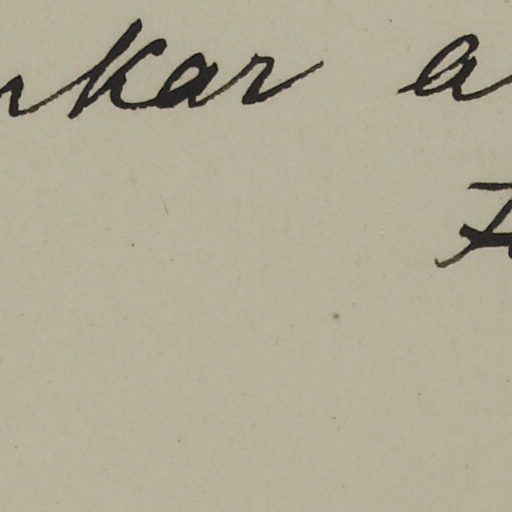 nkar a